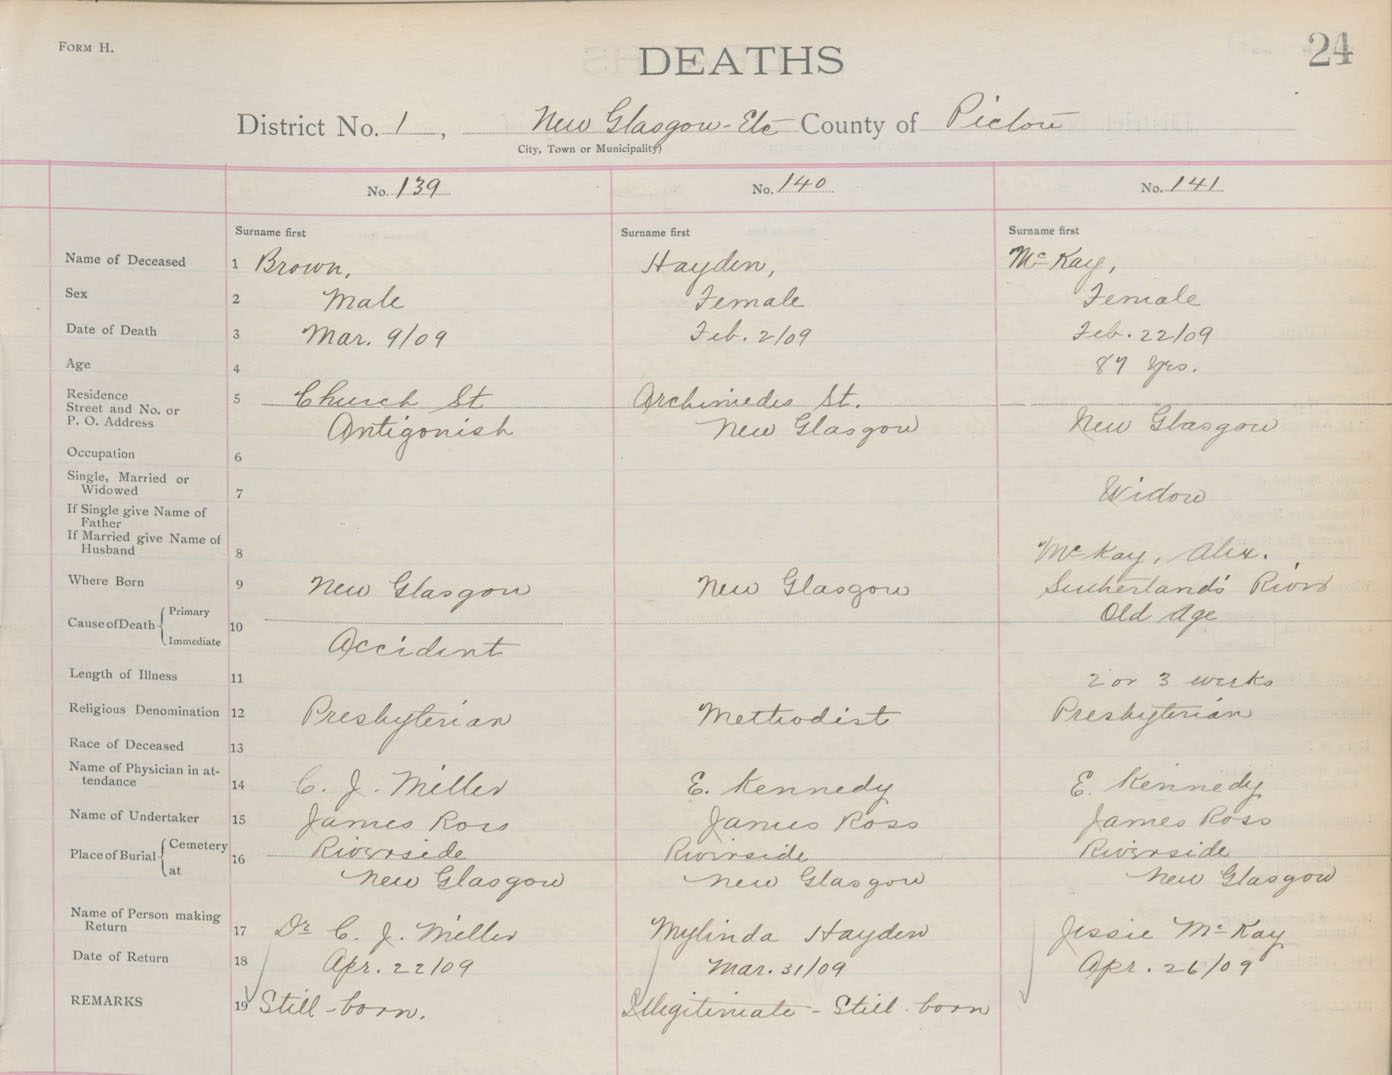 FORM H.
DEATHS
24
District No. 1, New Glasgow - Etc County of Pictou
City, Town or Municipality)
No. 139 No. 140 No. 141
Surname first Surname first Surname first
Name of Deceased 1 Brown, Hayden, McKay,
Sex 2 Male Female Female
Date of Death 3 Mar. 9/09 Feb. 2/09 Feb. 22/09
Age 4 87 yrs.
Residence 5 Church St Archimedes St.
Street and No. or
P. O. Address Antigonish New Glasgow New Glasgow
Occupation 6
Single, Married or
Widowed 7 Widow
If Single give Name of
Father
If Married give Name of
Husband 8 McKay, Alex.
Where Born 9 New Glasgow New Glasgow Sutherland's River
Cause of Death Primary 10 Old Age
Immediate Accident
Length of Illness 11 2 or 3 weeks
Religious Denomination 12 Presbyterian Methodist Presbyterian
Race of Deceased 13
Name of Physician in at-
tendance 14 C. J. Miller E. Kennedy E. Kennedy
Name of Undertaker 15 James Ross James Ross James Ross
Place of Burial Cemetery 16 Riverside Riverside Riverside
at New Glasgow New Glasgow New Glasgow
Name of Person making
Return 17 Dr C. J. Miller Mylinda Hayden Jessie McKay
Date of Return 18 Apr. 22/09 Mar. 31/09 Apr. 26/09
REMARKS 19 Still-born. Illegitimate - Still-born